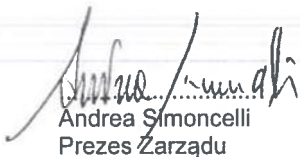 Andrea Simoncelli
Prezes Zarządu